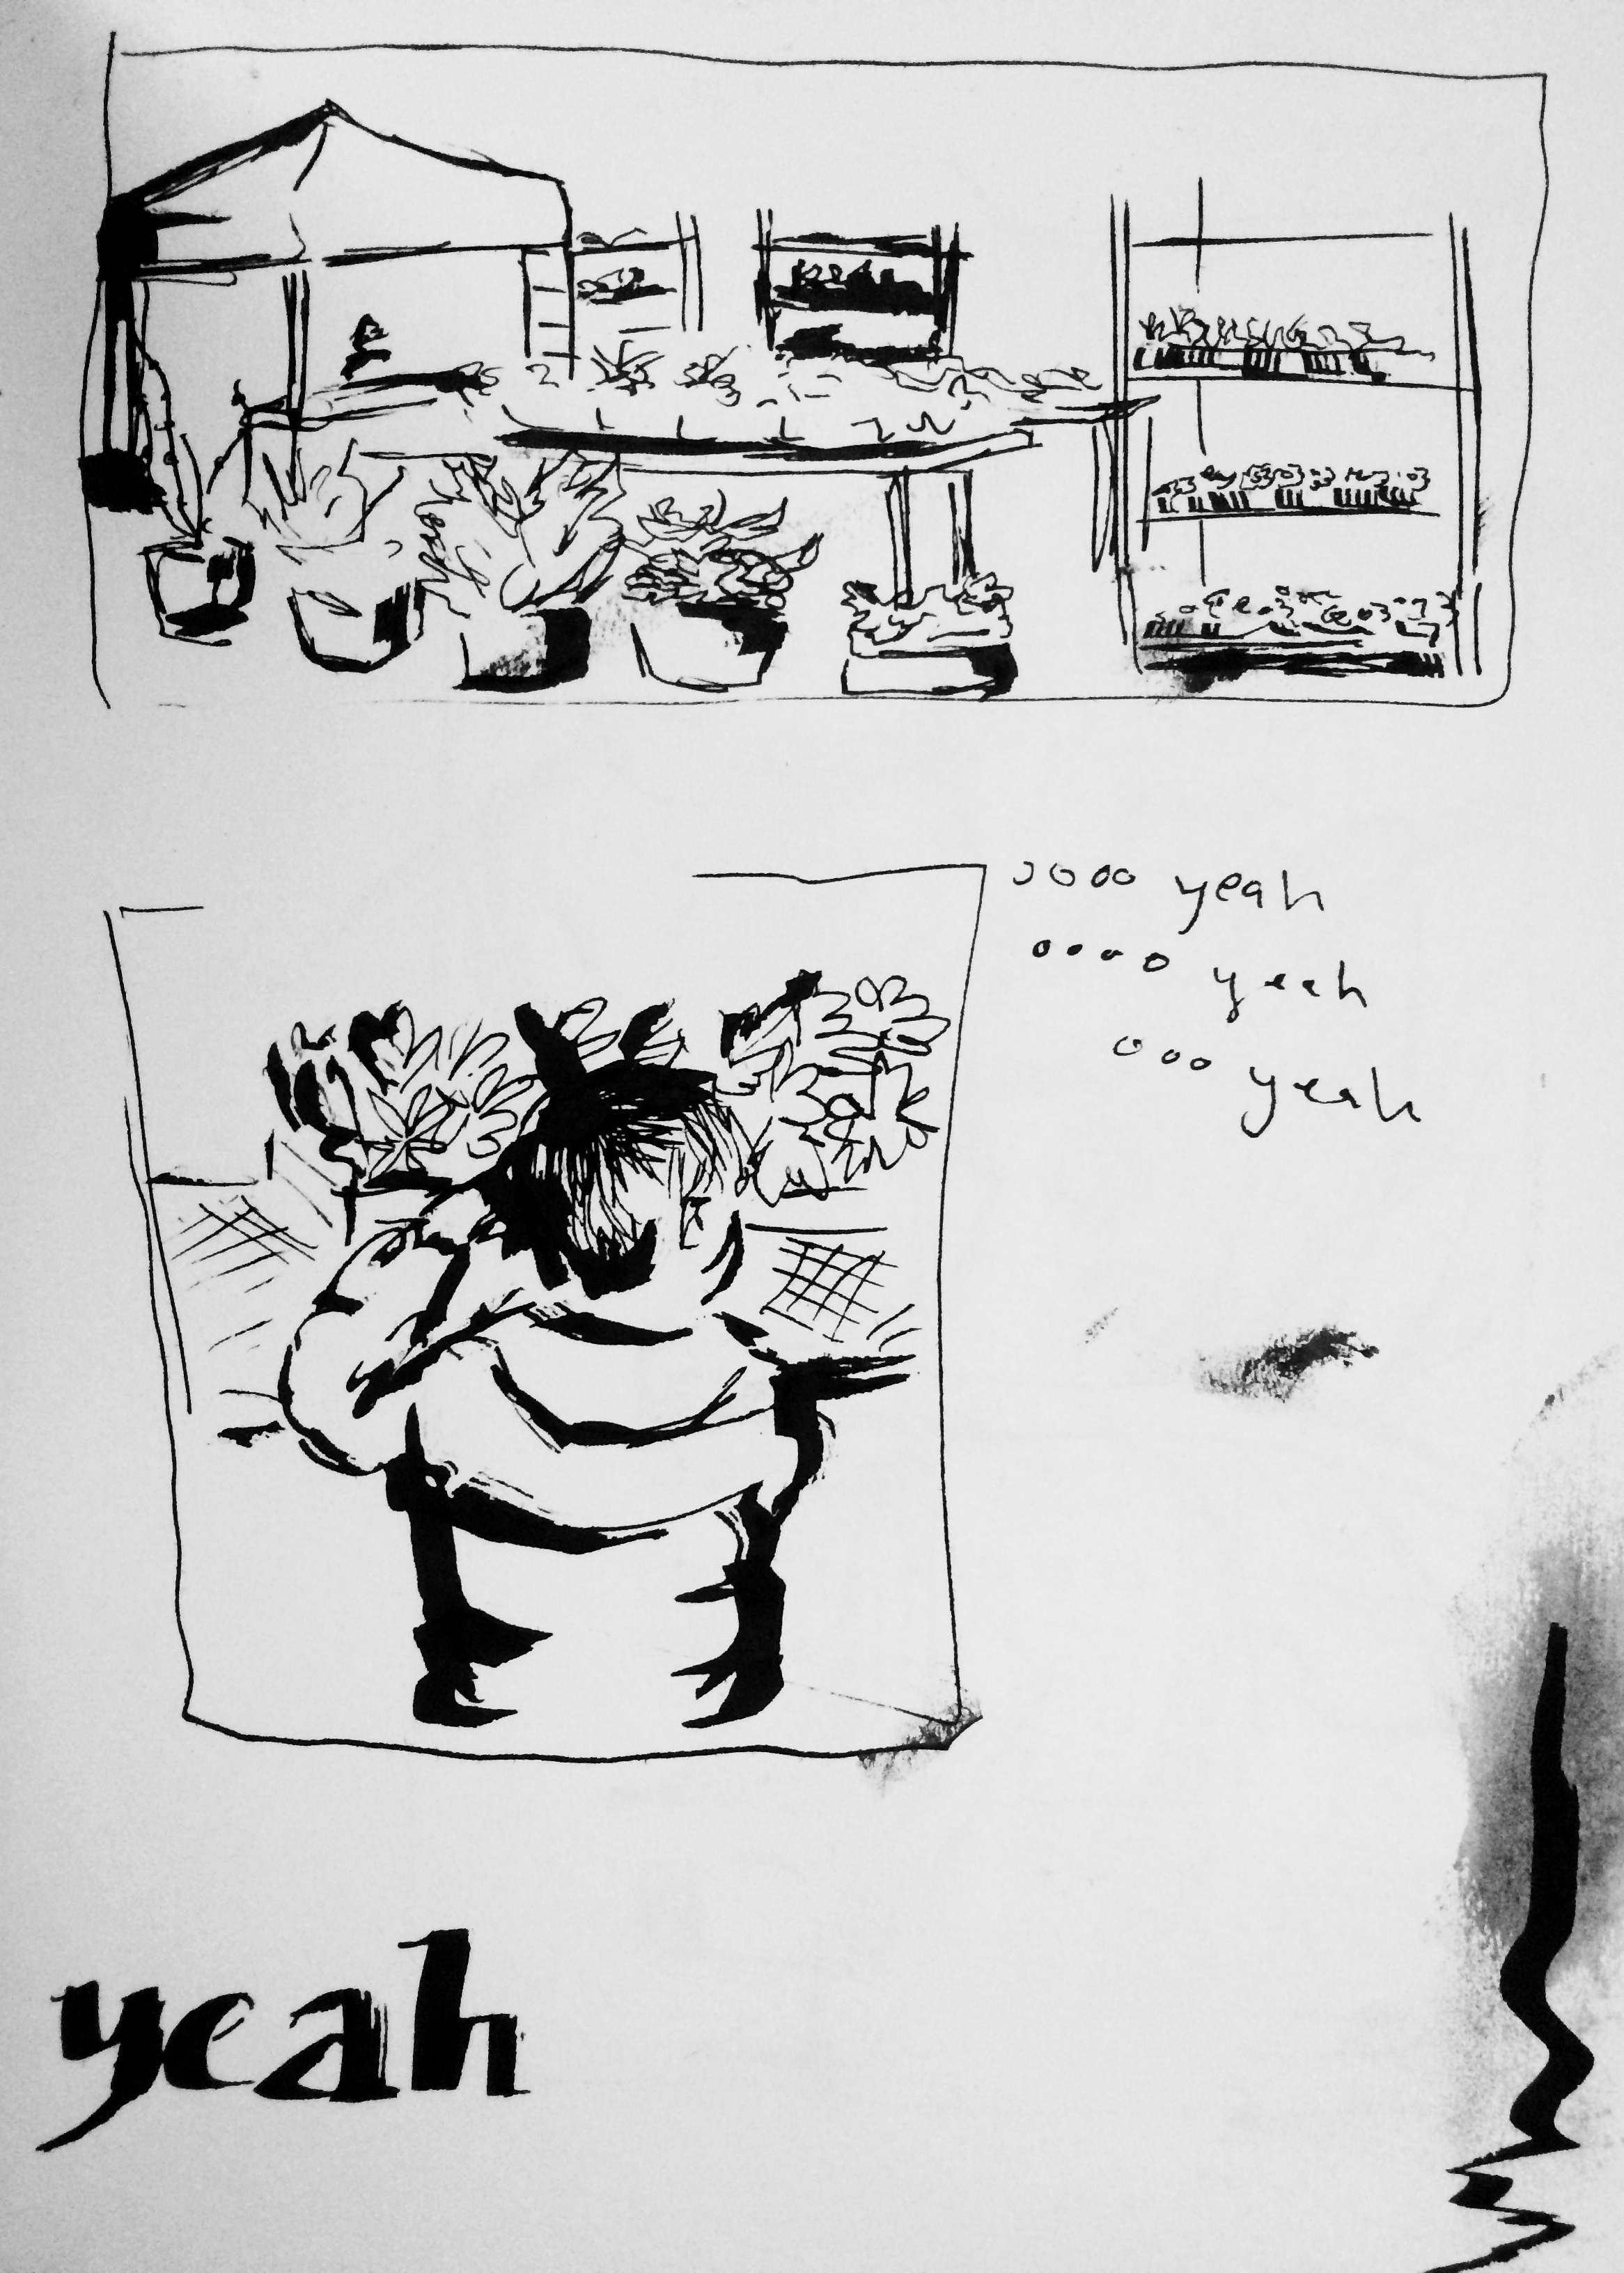 oooo yeah
oooo yeah
ooo yeah
yeah